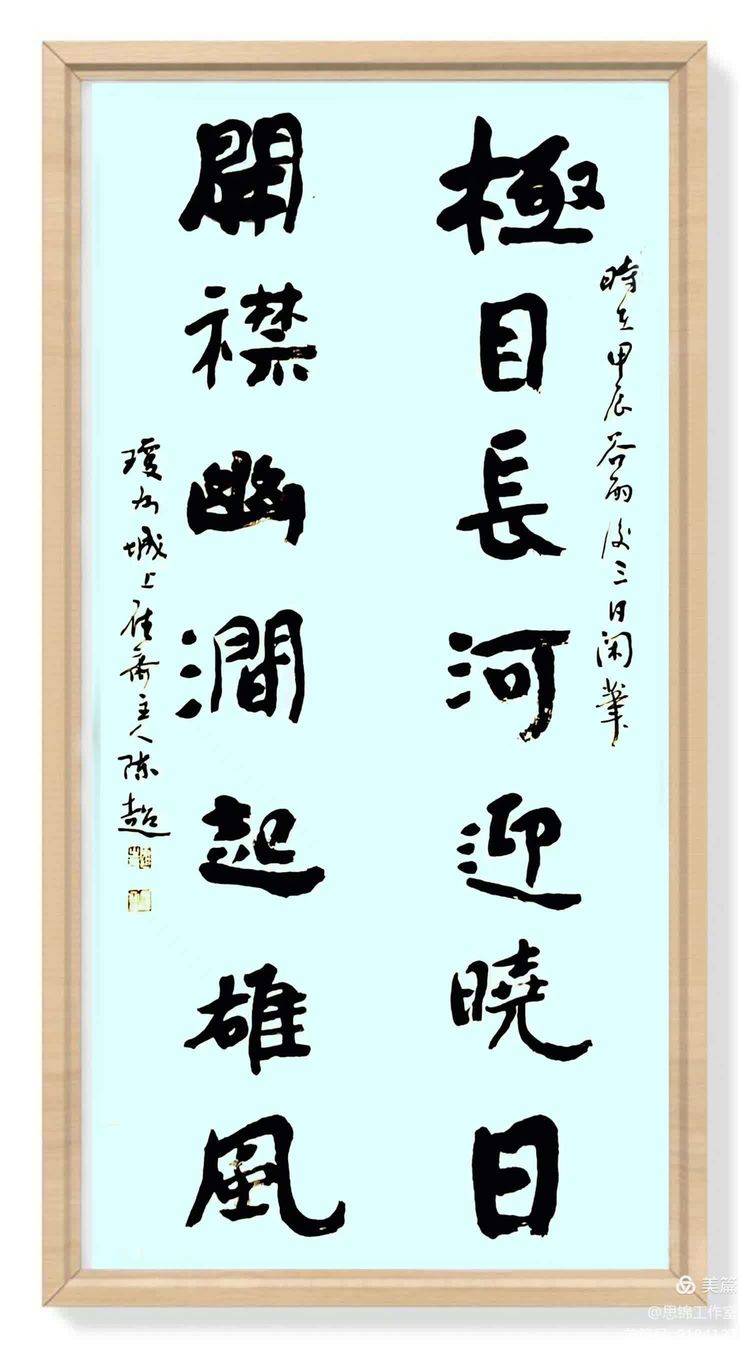 極目長河迎曉日
時在甲辰谷雨後三日闲筆
開襟幽澗起雄風
城上
主人陈超
美篇
@思锦工作室